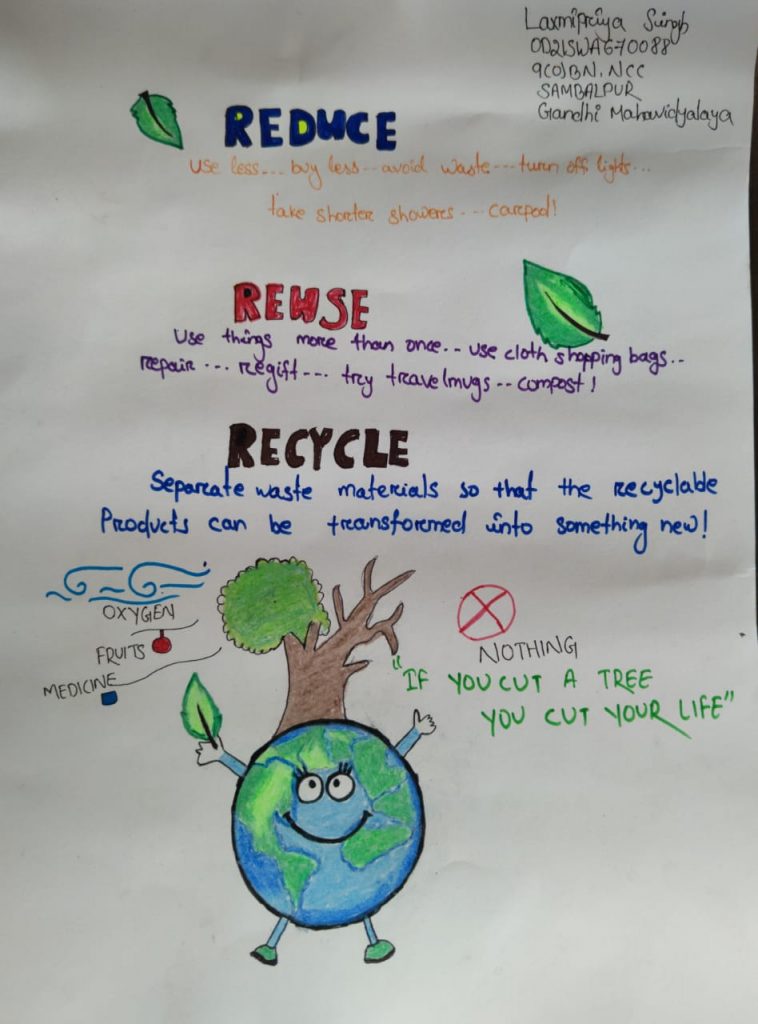 Laxmipriya Singh
OD21SWA670088
9(O)BN. NCC
SAMBALPUR
Gandhi Mahavidyalaya
REDUCE
Use less... buy less...avoid waste...turn off lights...
take shorter showers...carpool!
REUSE
Use things more than once.. use cloth shopping bags..
repair... regift... try travelmugs.. compost!
RECYCLE
Separate waste materials so that the recyclable
Products can be transformed into something new!
OXYGEN
FRUITS
MEDICINE
NOTHING
"IF YOU CUT A TREE
YOU CUT YOUR LIFE"